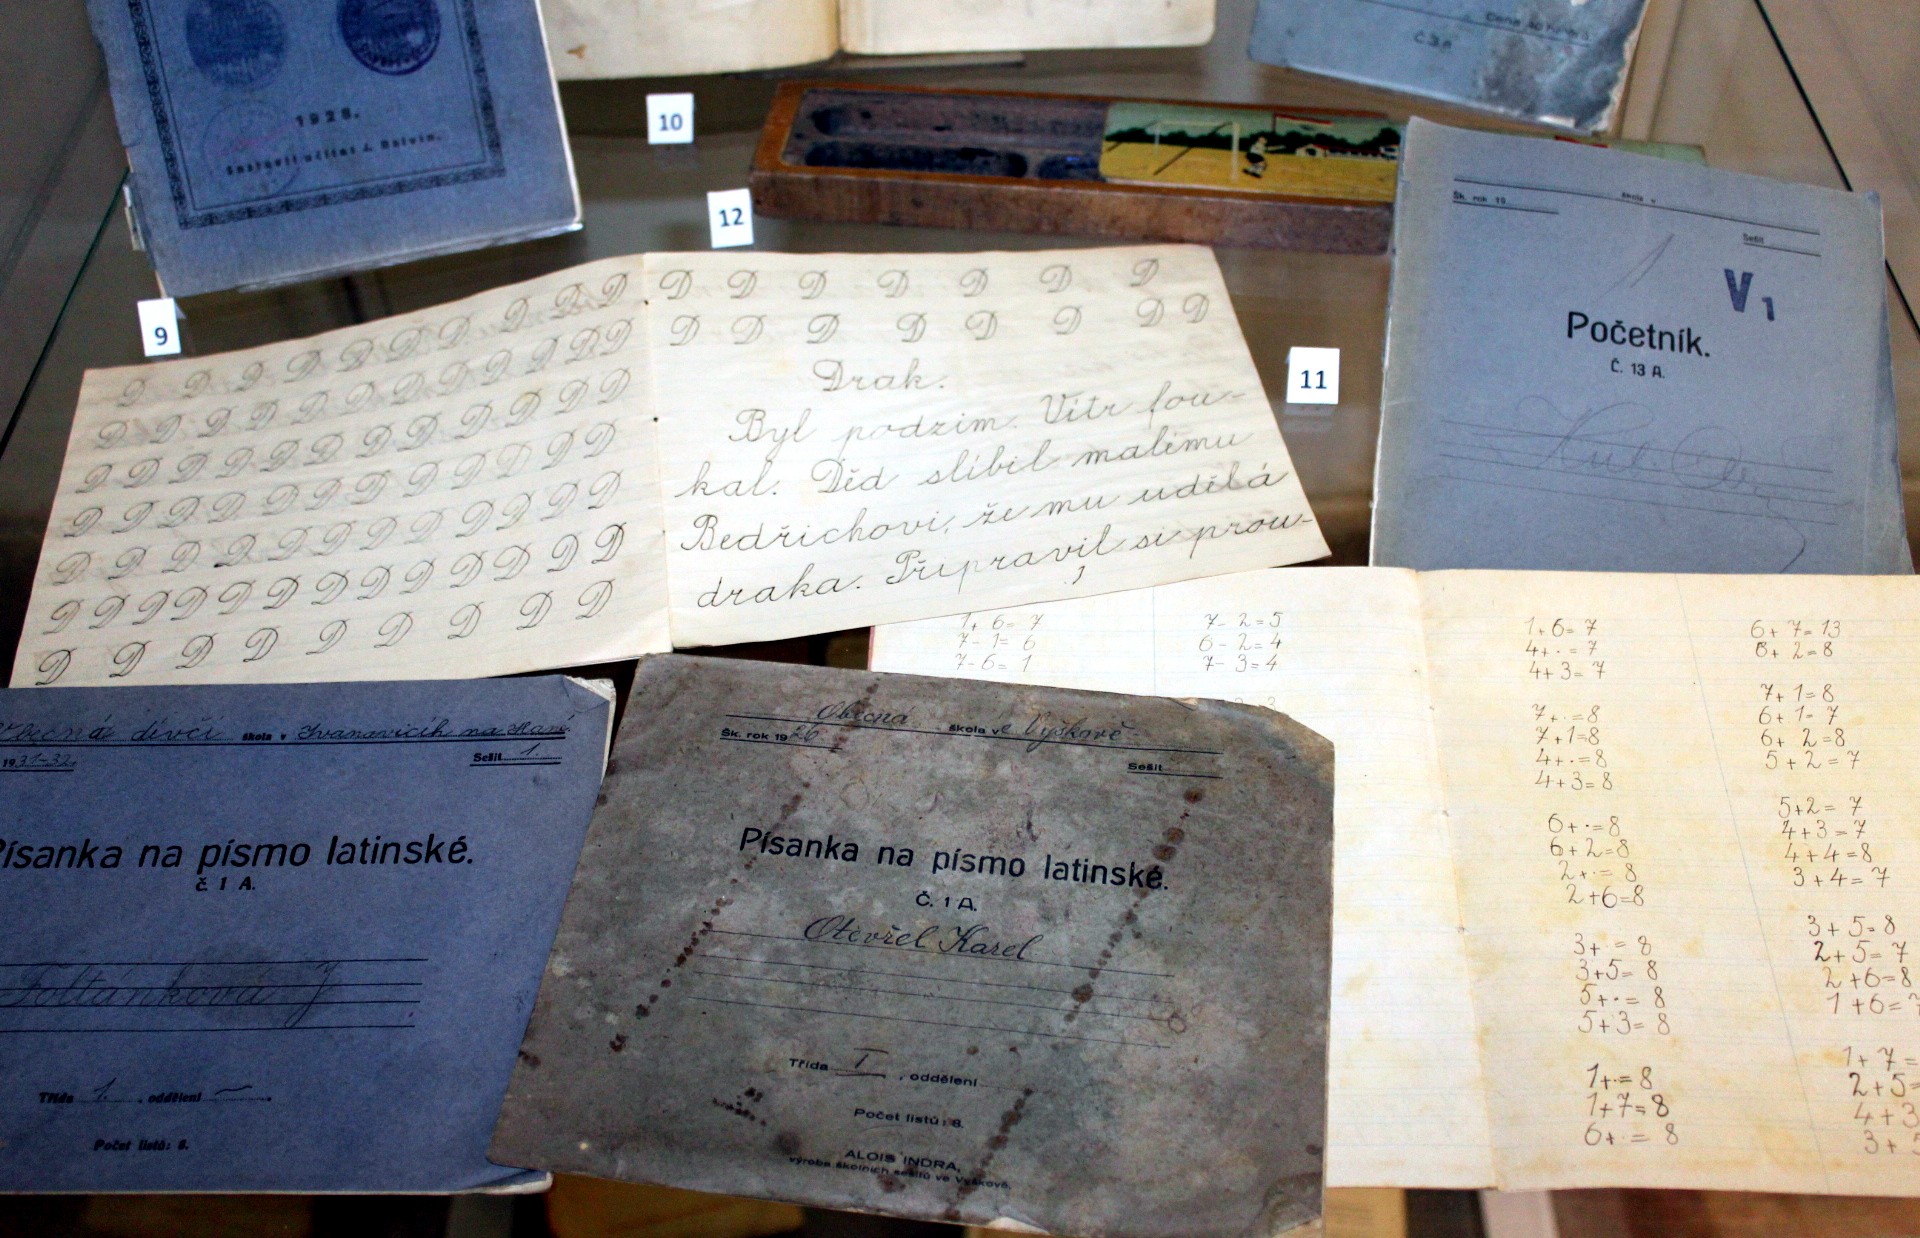 1928.
Sestavil učitel J.
10
Č. 3
12
9
11
D D D D D D D D D D
D D D D D D D D D D D
D D D D D D D D D D D D
D D D D D D D D D D D D
D D D D D D D D D D D D
D D D D D D D D D D D D
D D D D D D D D
D D D D D D D
D D D D D D D D
Drak.
Byl podzim. Vítr fou-
kal. Děd slíbil malému
Bedřichovi, že mu udělá
draka. Připravil si prou-
Šk. rok 19
škola v
Sešit
V 1
Početník.
Č. 13 A.
1+6=7
7-1=6
7-6=1
7-2=5
6-2=4
7-3=4
1+6=7
4+·=7
4+3=7
7+·=8
7+1=8
4+·=8
4+3=8
6+·=8
6+2=8
2+·=8
2+6=8
3+·=8
3+5=8
5+·=8
5+3=8
1+·=8
1+7=8
6+·=8
6+7=13
6+2=8
7+1=8
6+1=7
6+2=8
5+2=7
5+2=7
4+3=7
4+4=8
3+4=7
3+5=8
2+5=7
2+6=8
1+6=7
1+7=
2+5=
4+3
3+5
Obecná dívčí škola v Ivanovicích na Hané
1931-32.
Sešit 1.
Písanka na písmo latinské.
č. 1 A.
Foltánková J
Třída 1. , oddělení — .
Počet listů: 8.
Obecná škola ve Vyškově
Šk. rok 1926
Sešit
Písanka na písmo latinské.
Č. 1 A.
Otevřel Karel
Třída I , oddělení
Počet listů: 8.
ALOIS INDRA,
výroba školních sešitů ve Vyškově.